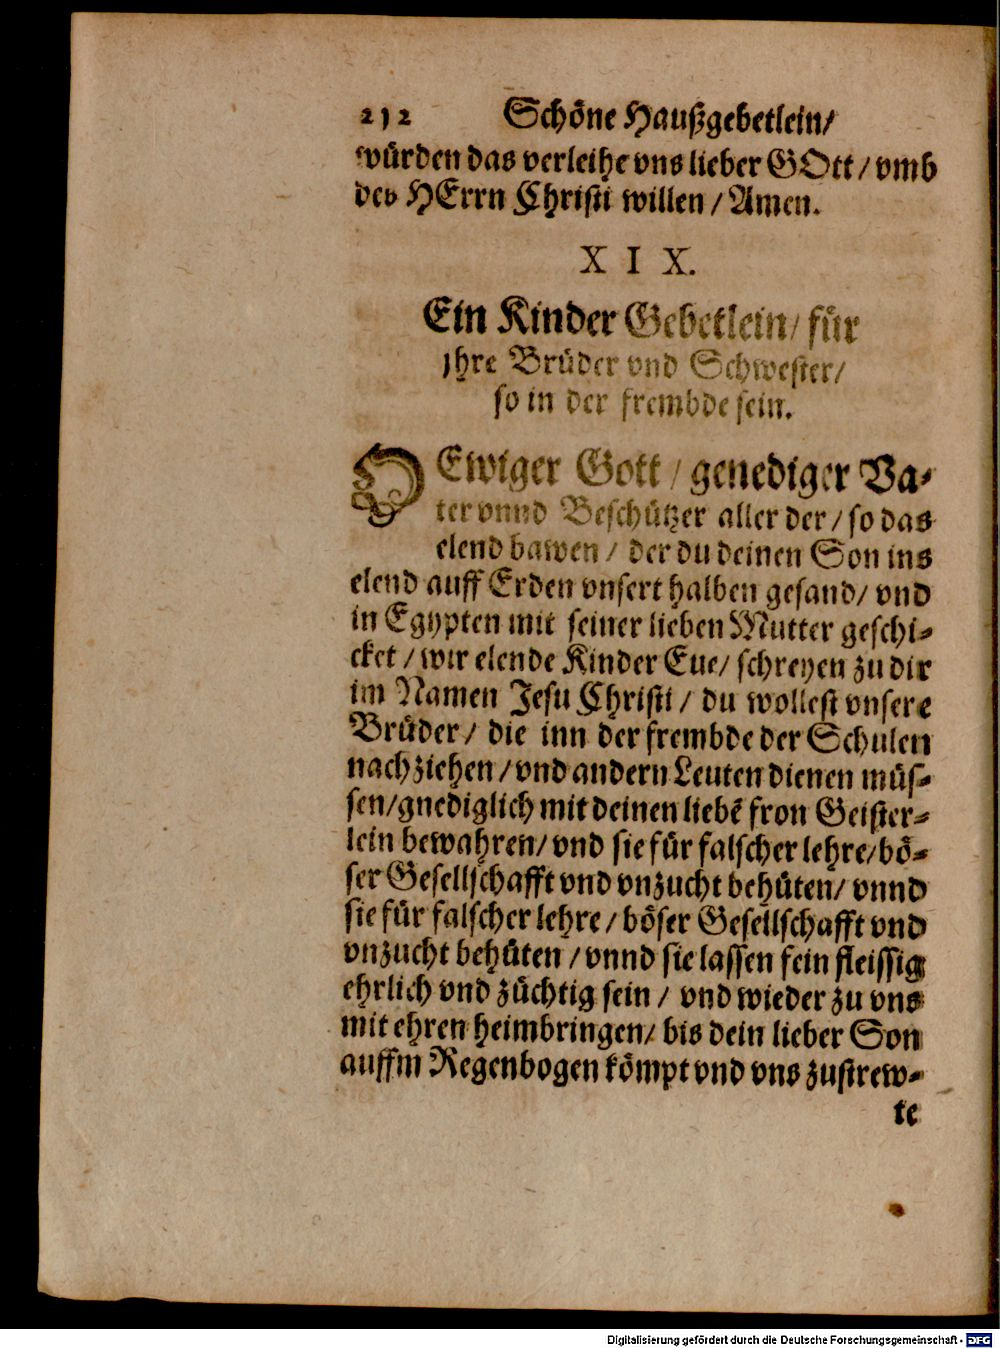 212 Schöne Haußgebetlein/
würden das verleihe vns lieber GOtt / vmb
des HErrn Christi willen / Amen.
XIX.
Ein Kinder Gebetlein / für
jhre Brüder vnd Schwester /
so in der frembde sein.
O Ewiger Gott / genediger Va-
ter vnnd Beschützer aller der / so das
elend bawen / der du deinen Son ins
elend auff Erden vnsert halben gesand / vnd
in Egypten mit seiner lieben Mutter geschi-
cket / wir elende Kinder Eue / schreyen zu dir
im Namen Jesu Christi / du wollest vnsere
Brüder / die inn der frembde der Schulen
nachziehen / vnd andern Leuten dienen müs-
sen / gnediglich mit deinen liebẽ fron Geister-
lein bewahren / vnd sie für falscher lehre / bö-
ser Gesellschafft vnd vnzucht behüten / vnnd
sie für falscher lehre / böser Gesellschafft vnd
vnzucht behüten / vnnd sie lassen fein fleissig
ehrlich vnd züchtig sein / vnd wieder zu vns
mit ehren heimbringen / bis dein lieber Son
auffm Regenbogen kömpt vnd vns zustrew-
te
Digitalisierung gefördert durch die Deutsche Forschungsgemeinschaft - DFG